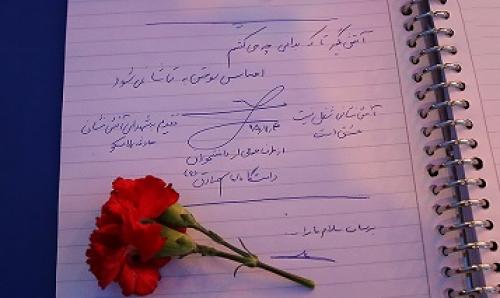 آتش بگیر تا که بدانی چه می‌کشم
احساس سوختن به تماشا نمی‌شود
آتش نشانی شغل نیست
عشق است
تقدیم به شهدای آتش نشانی
حادثه پلاسکو
از طرف جمعی از دانشجویان
دانشگاه امام صادق (ع)
برسان سلام ما را